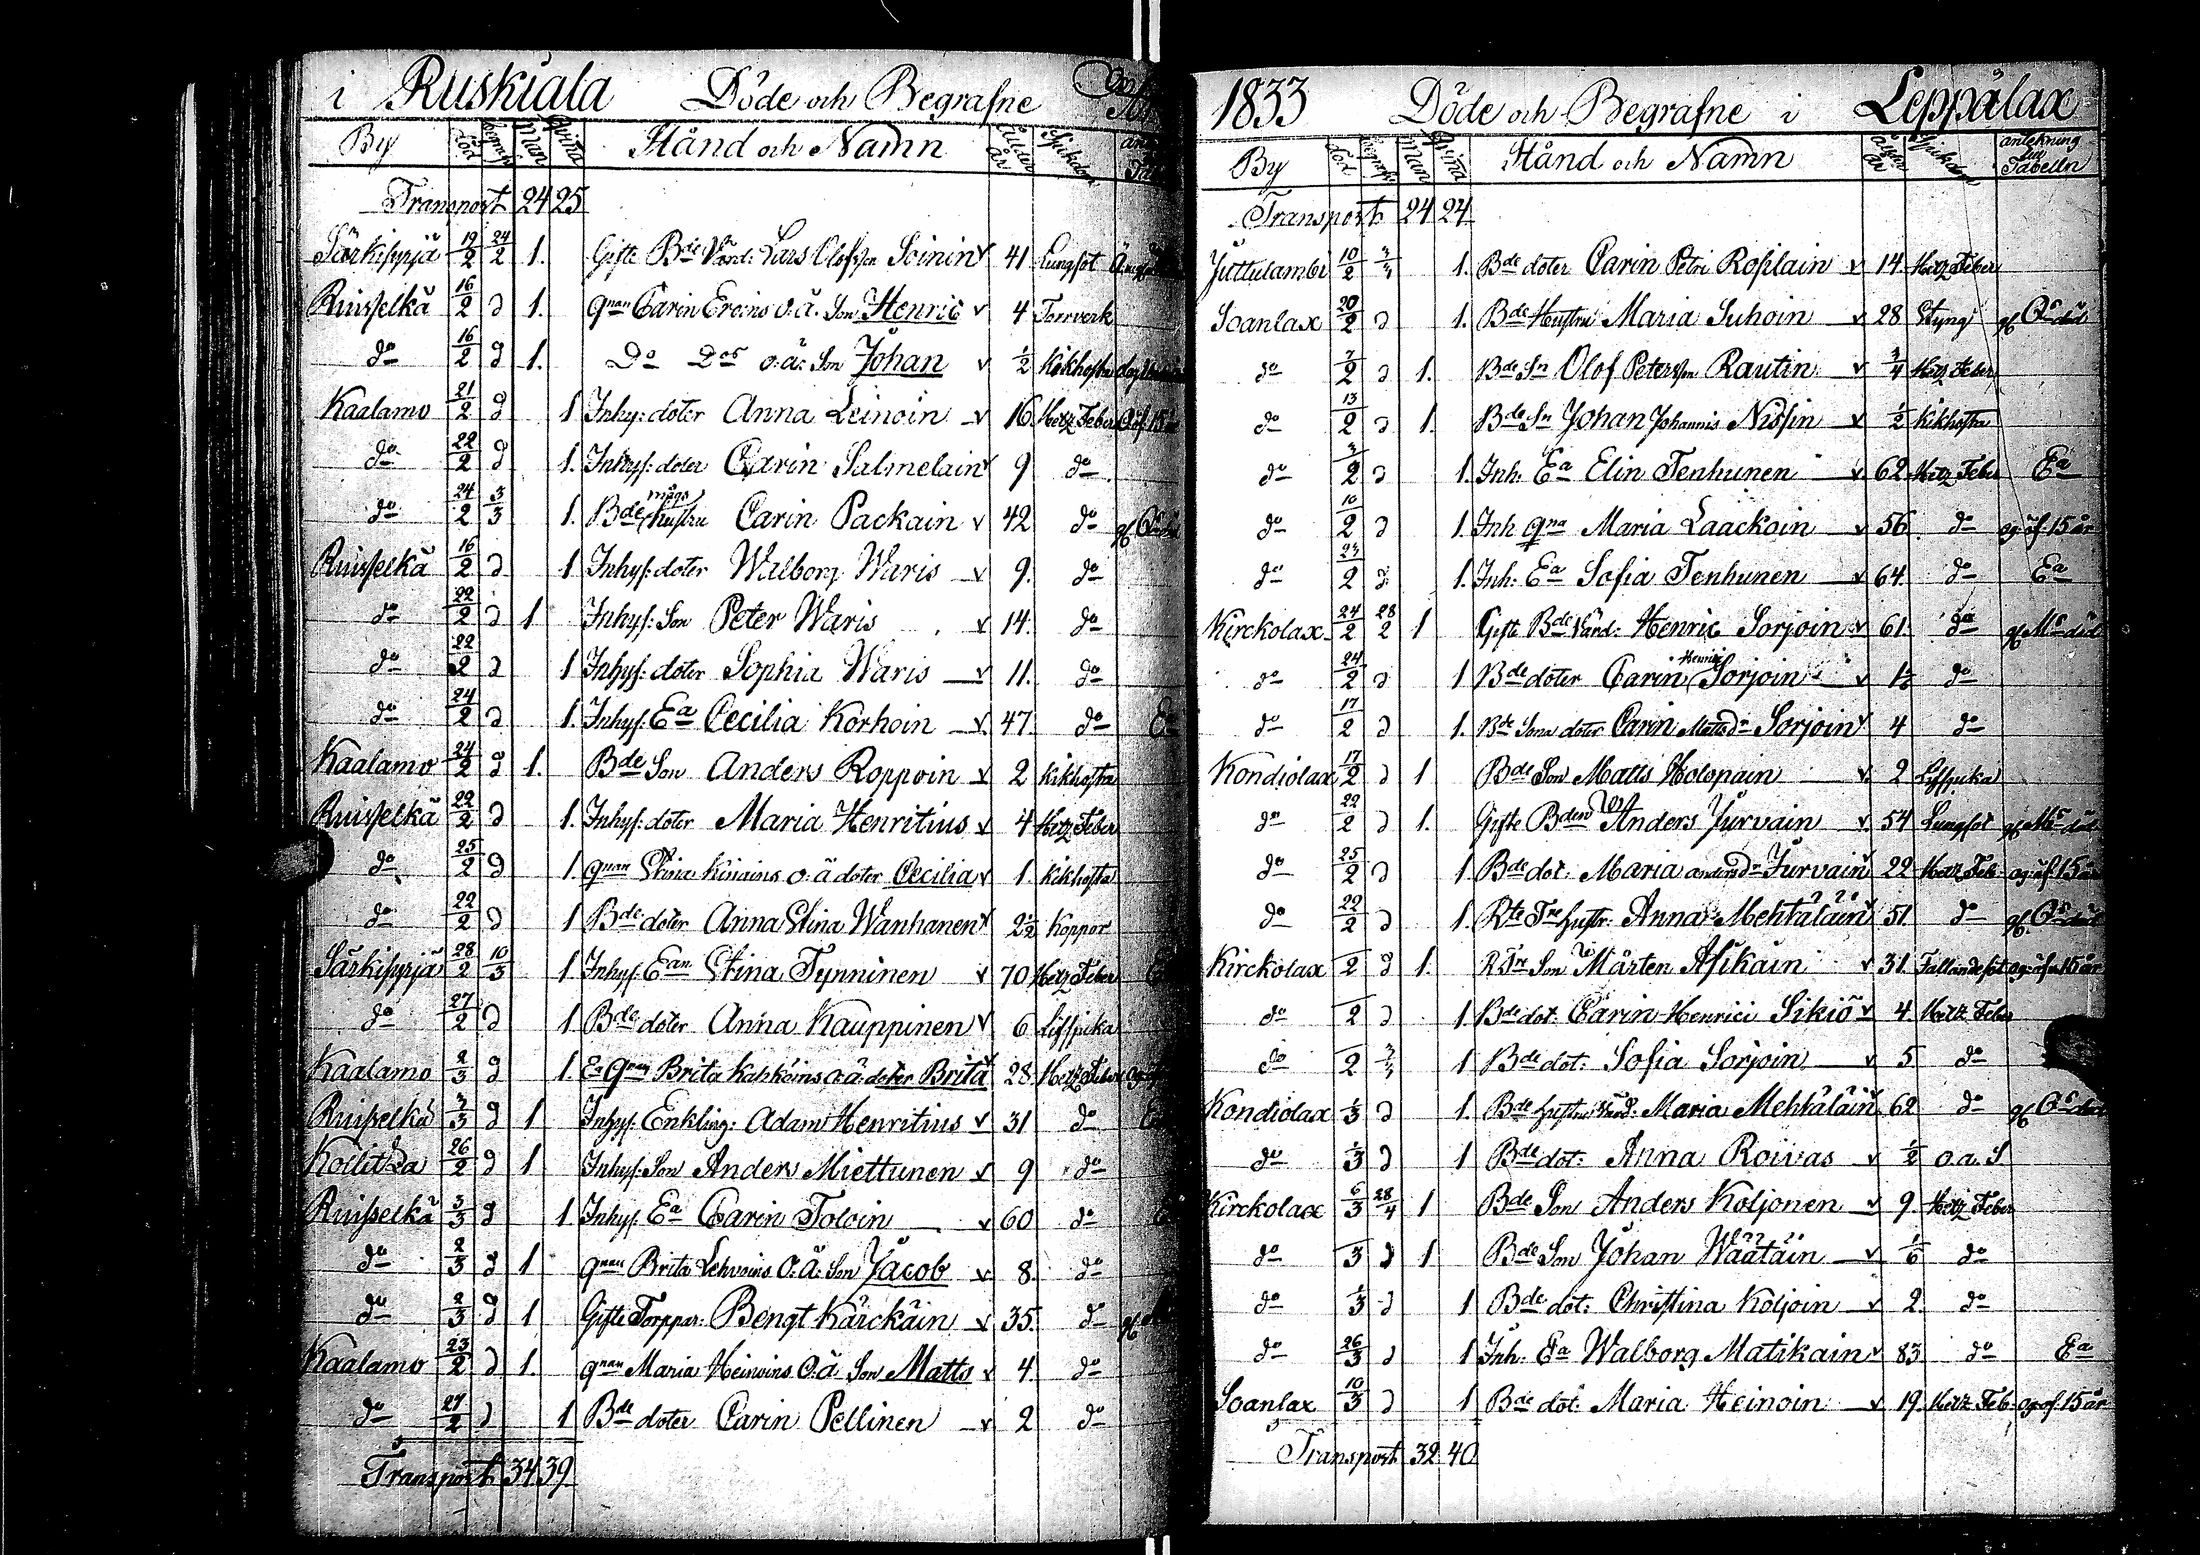 i Ruskiala Döde och Begrafne
By Död Man Qvina Stånd och Namn Ålder år Sjukdom
Transport 24 25
Särkisyrjä 19/2 24/2 1. Gifte Bde Värd: Lars Olofsson Soinin v 41 Lungsot
Ruisselkä 16/2 d 1. qnan Carin Ercins o.ä. Son Henric v 4 Torrverk
do 16/2 d 1. Do Dos o:ä: Son Johan v 1/2 Kikhosta
Kaalamo 21/2 d 1 Inhys: doter Anna Leinoin v 16 Hetz Feber öf. 15 år
do 22/2 d 1. Inhys: doter Carin Salmelain v 9 do
do 24/2 3/3 1. Bde mågs hustru Carin Packain v 42 do
Ruisselkä 16/2 d 1 Inhys: doter Walborg Waris v 9. do
do 22/2 d 1 Inhys: Son Peter Waris v 14. do
do 22/2 d 1 Inhys: doter Sophia Waris v 11. do
do 24/2 d 1. Inhys: Ea Cecilia Korhoin v 47. do Ea
Kaalamo 24/2 d 1. Bde Son Anders Roppoin v 2 Kikhosta
Ruisselkä 22/2 d 1. Inhys: doter Maria Henritius v 4 Hetz Feber
do 25/2 d 1. qnan Stina Kinains o.ä doter Cecilia v 1. Kikhosta
do 22/2 d 1 Bde doter Anna Stina Wanhanen v 2 1/2 Koppor
Särkisyrjä 28/2 10/3 1 Inhys. Ean Stina Tynninen v 70 Hetz Feber
do 27/2 d 1. Bde doter Anna Kauppinen v 6 Lifspuka
Kaalamo 2/3 d 1. Ea qnan Brita Kahkoins o.ä. doter Brita 28. Hetz Feber
Ruisselkä 3/3 d 1 Inhys. Enkling: Adam Henritius v 31 do
26/2 d 1 Inhys: Son Anders Miettunen v 9 do
Ruisselkä 3/3 d 1. Inhys. Ea Carin Toloin v 60 do
do 2/3 d 1 qnan Brita Lehvoins o.ä: Son Jacob v 8. do
do 2/3 d 1 Gifte Torppar: Bengt Kärckäin v 35. do
Kaalamo 23/2 d 1. qnan Maria Heinoins o.ä. Son Matts v 4 do
do 27/2 d 1 Bde doter Carin Pellinen v 2 do
Transport 34 39
1833 Döde och Begrafne i Leppälax
By Död Man Qvina Stånd och Namn ålder år Sjukdom antekning till Tabelln
Transport 24 24
Juttulambi 10/2 3/3 1. Bde doter Carin Petri Rosslain v 14. Hetz Feber
Soanlax 20/2 d 1. Bde Hustru Maria Suhoin v 28 Styng gf Qs död
do 7/2 d 1. Bde Sn Olof Petersson Rautin v 3/4 Hetz Feber
do 13/2 d 1. Bde Sn Johan Johannis Nissin v 1/2 Kikhosta
do 3/2 d 1. Inh. Ea Elin Tenhunen v 62. Hetz Feber Ea
do 10/2 d 1. Inh qna Maria Laackoin v 56. do og. öf. 15 år
do 23/2 d 1. Inh: Ea Sofia Tenhunen v 64. do Ea
Kirckolax 24/2 28/2 1 Gifte Bde Värd: Henric Sorjoin v 61. do gf Ms död
do 24/2 d 1 Bde doter Carin Henrici Sorjoin v do
do 17/2 d 1. Bde Sons doter Carin Mattsdr Sorjoin v 4 do
Kondiolax 17/2 d 1 Bde Son Matts Holopain v. 2 Lifspuka
do 22/2 d 1. Gifte Bden Anders Jurvain v. 54 Lungsot gf Ms död
do 25/2 d 1. Bde dot. Maria andersdr Jurvain v 22 Hetz Feb. og. öf. 15 år
do 22/2 d 1. Rte Tre hustr. Anna Mehtäläin v 51. do gf Qs död
Kirckolax 2 d 1. Rs Tre Son Mårten Asikain v 31. Fallandesot og. öf. 15 år
do 2 d 1. Bde dot. Carin Henrici Sikiö v 4 Hetz Feber
do 2 3/3 1 Bde dot: Sofia Sorjoin v 5 do
Kondiolax 1/3 d 1. Bde hustru Värd: Maria Mehtäläin v 62 do gf Qs död
do 1/3 d 1 Bde dot: Anna Roivas v 1/2 o.a. S
Kirckolax 6/3 28/4 1 Bde Son Anders Koljonen v 9. Hetz Feber
do 3 d 1 Bde Son Johan Wäätäin v 1/6 do
do 1/3 d 1 Bde dot: Christina Koljoin v 2. do
do 26/3 d 1 Inh. Ea Walborg Matikain v 83. do Ea
Soanlax 10/3 d 1 Bde dot. Maria Heinoin v 19. Hetz Feb. og. öf. 15 år
Transport 32. 40